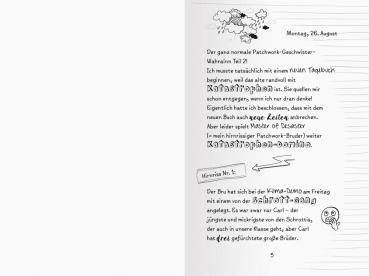 Montag, 26. August
Der ganz normale Patchwork-Geschwister-
Wahnsinn Teil 2!
Ich musste tatsächlich mit einem neuen Tagebuch
beginnen, weil das alte randvoll mit
Katastrophen ist. Sie quellen mir
schon entgegen, wenn ich nur dran denke!
Eigentlich hatte ich beschlossen, dass mit dem
neuen Buch auch neue Zeiten anbrechen.
Aber leider spielt Master of Desaster
(= mein hirnrissiger Patchwork-Bruder) weiter
Katastrophen-Domino.
Hirnriss Nr. 1:
Der Bru hat sich bei der Klima-Demo am Freitag
mit einem von der Schrott-Gang
angelegt. Es war zwar nur Carl – der
jüngste und mickrigste von den Schrotts,
der auch in unsere Klasse geht, aber Carl
hat drei gefürchtete große Brüder.
5